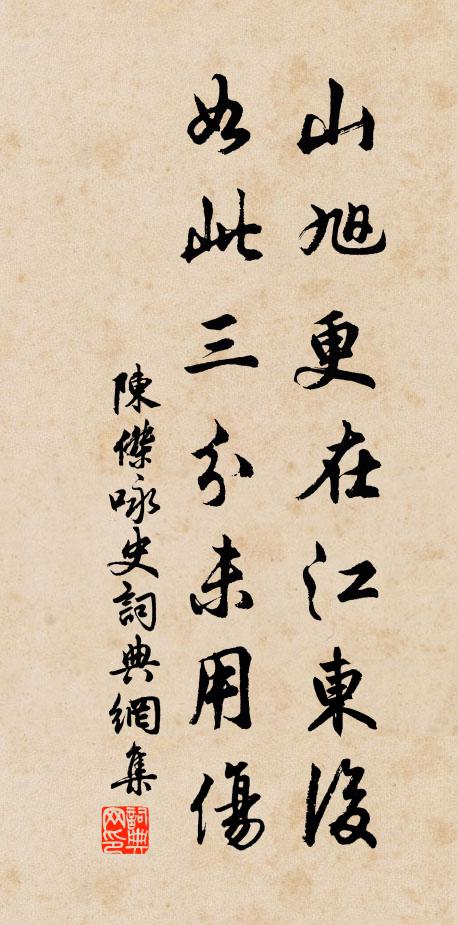 山旭更在江東後
如此三分未用傷
陳傑咏史詞典網集
詞典網印